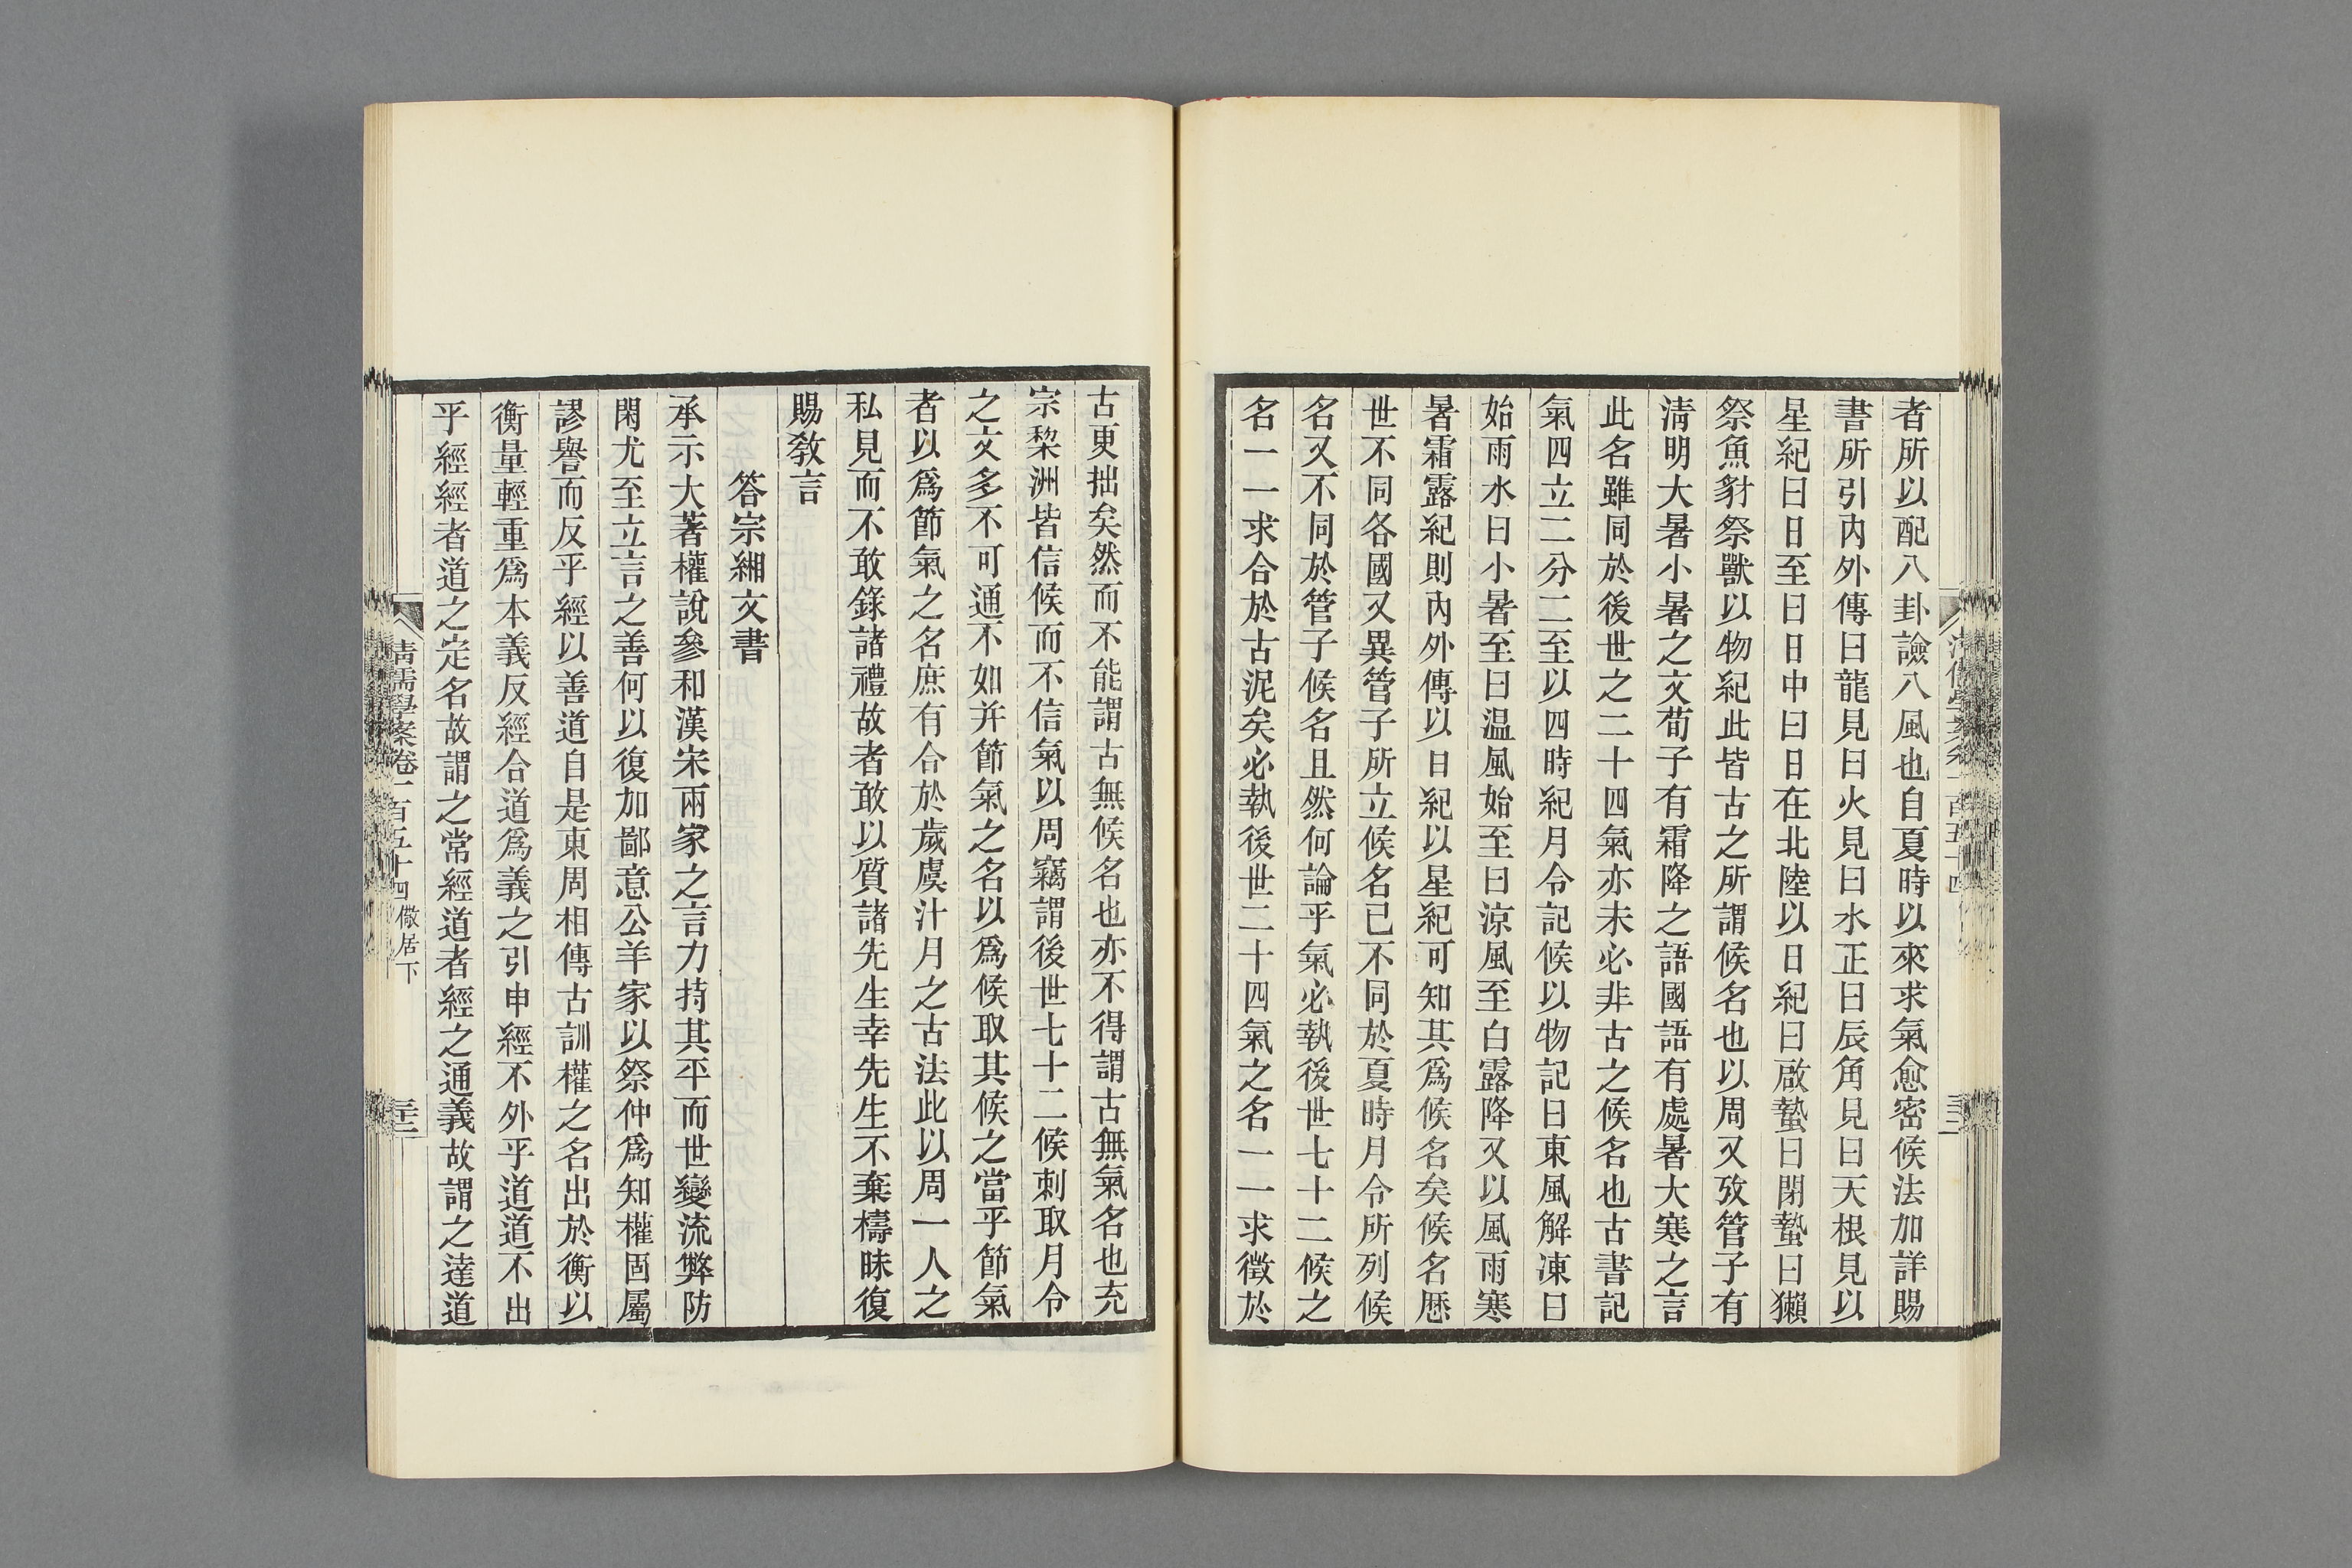 者所以配八卦譣八風也自夏時以來求氣愈密候法加詳賜
書所引內外傳曰龍見曰火見曰水正曰辰角見曰天根見以
星紀曰日至曰日中曰日在北陸以日紀曰啟蟄曰閉蟄曰獺
祭魚豺祭獸以物紀此皆古之所謂候名也以周又攷管子有
淸明大暑小暑之文荀子有霜降之語國語有處暑大寒之言
此名雖同於後世之二十四氣亦未必非古之候名也古書記
氣四立二分二至以四時紀月令記候以物記曰東風解凍曰
始雨水曰小暑至曰温風始至曰涼風至白露降又以風雨寒
暑霜露紀則內外傳以日紀以星紀可知其爲候名矣候名歷
世不同各國又異管子所立候名已不同於夏時月令所列候
名又不同於管子候名且然何論乎氣必執後世七十二候之
名一一求合於古泥矣必執後世二十四氣之名一一求徵於
古更拙矣然而不能謂古無候名也亦不得謂古無氣名也充
宗棃洲皆信候而不信氣以周竊謂後世七十二候刺取月令
之文多不可通不如并節氣之名以爲候取其候之當乎節氣
者以爲節氣之名庶有合於歲虞汁月之古法此以周一人之
私見而不敢錄諸禮故者敢以質諸先生幸先生不棄檮昧復
賜敎言
答宗緗文書
承示大著權說參和漢宋兩家之言力持其平而世變流弊防
閑尤至立言之善何以復加鄙意公羊家以祭仲爲知權固屬
謬譽而反乎經以善道自是東周相傳古訓權之名出於衡以
衡量輕重爲本義反經合道爲義之引申經不外乎道道不出
乎經經者道之定名故謂之常經道者經之通義故謂之達道
清儒學案卷一百五十四 儆居下